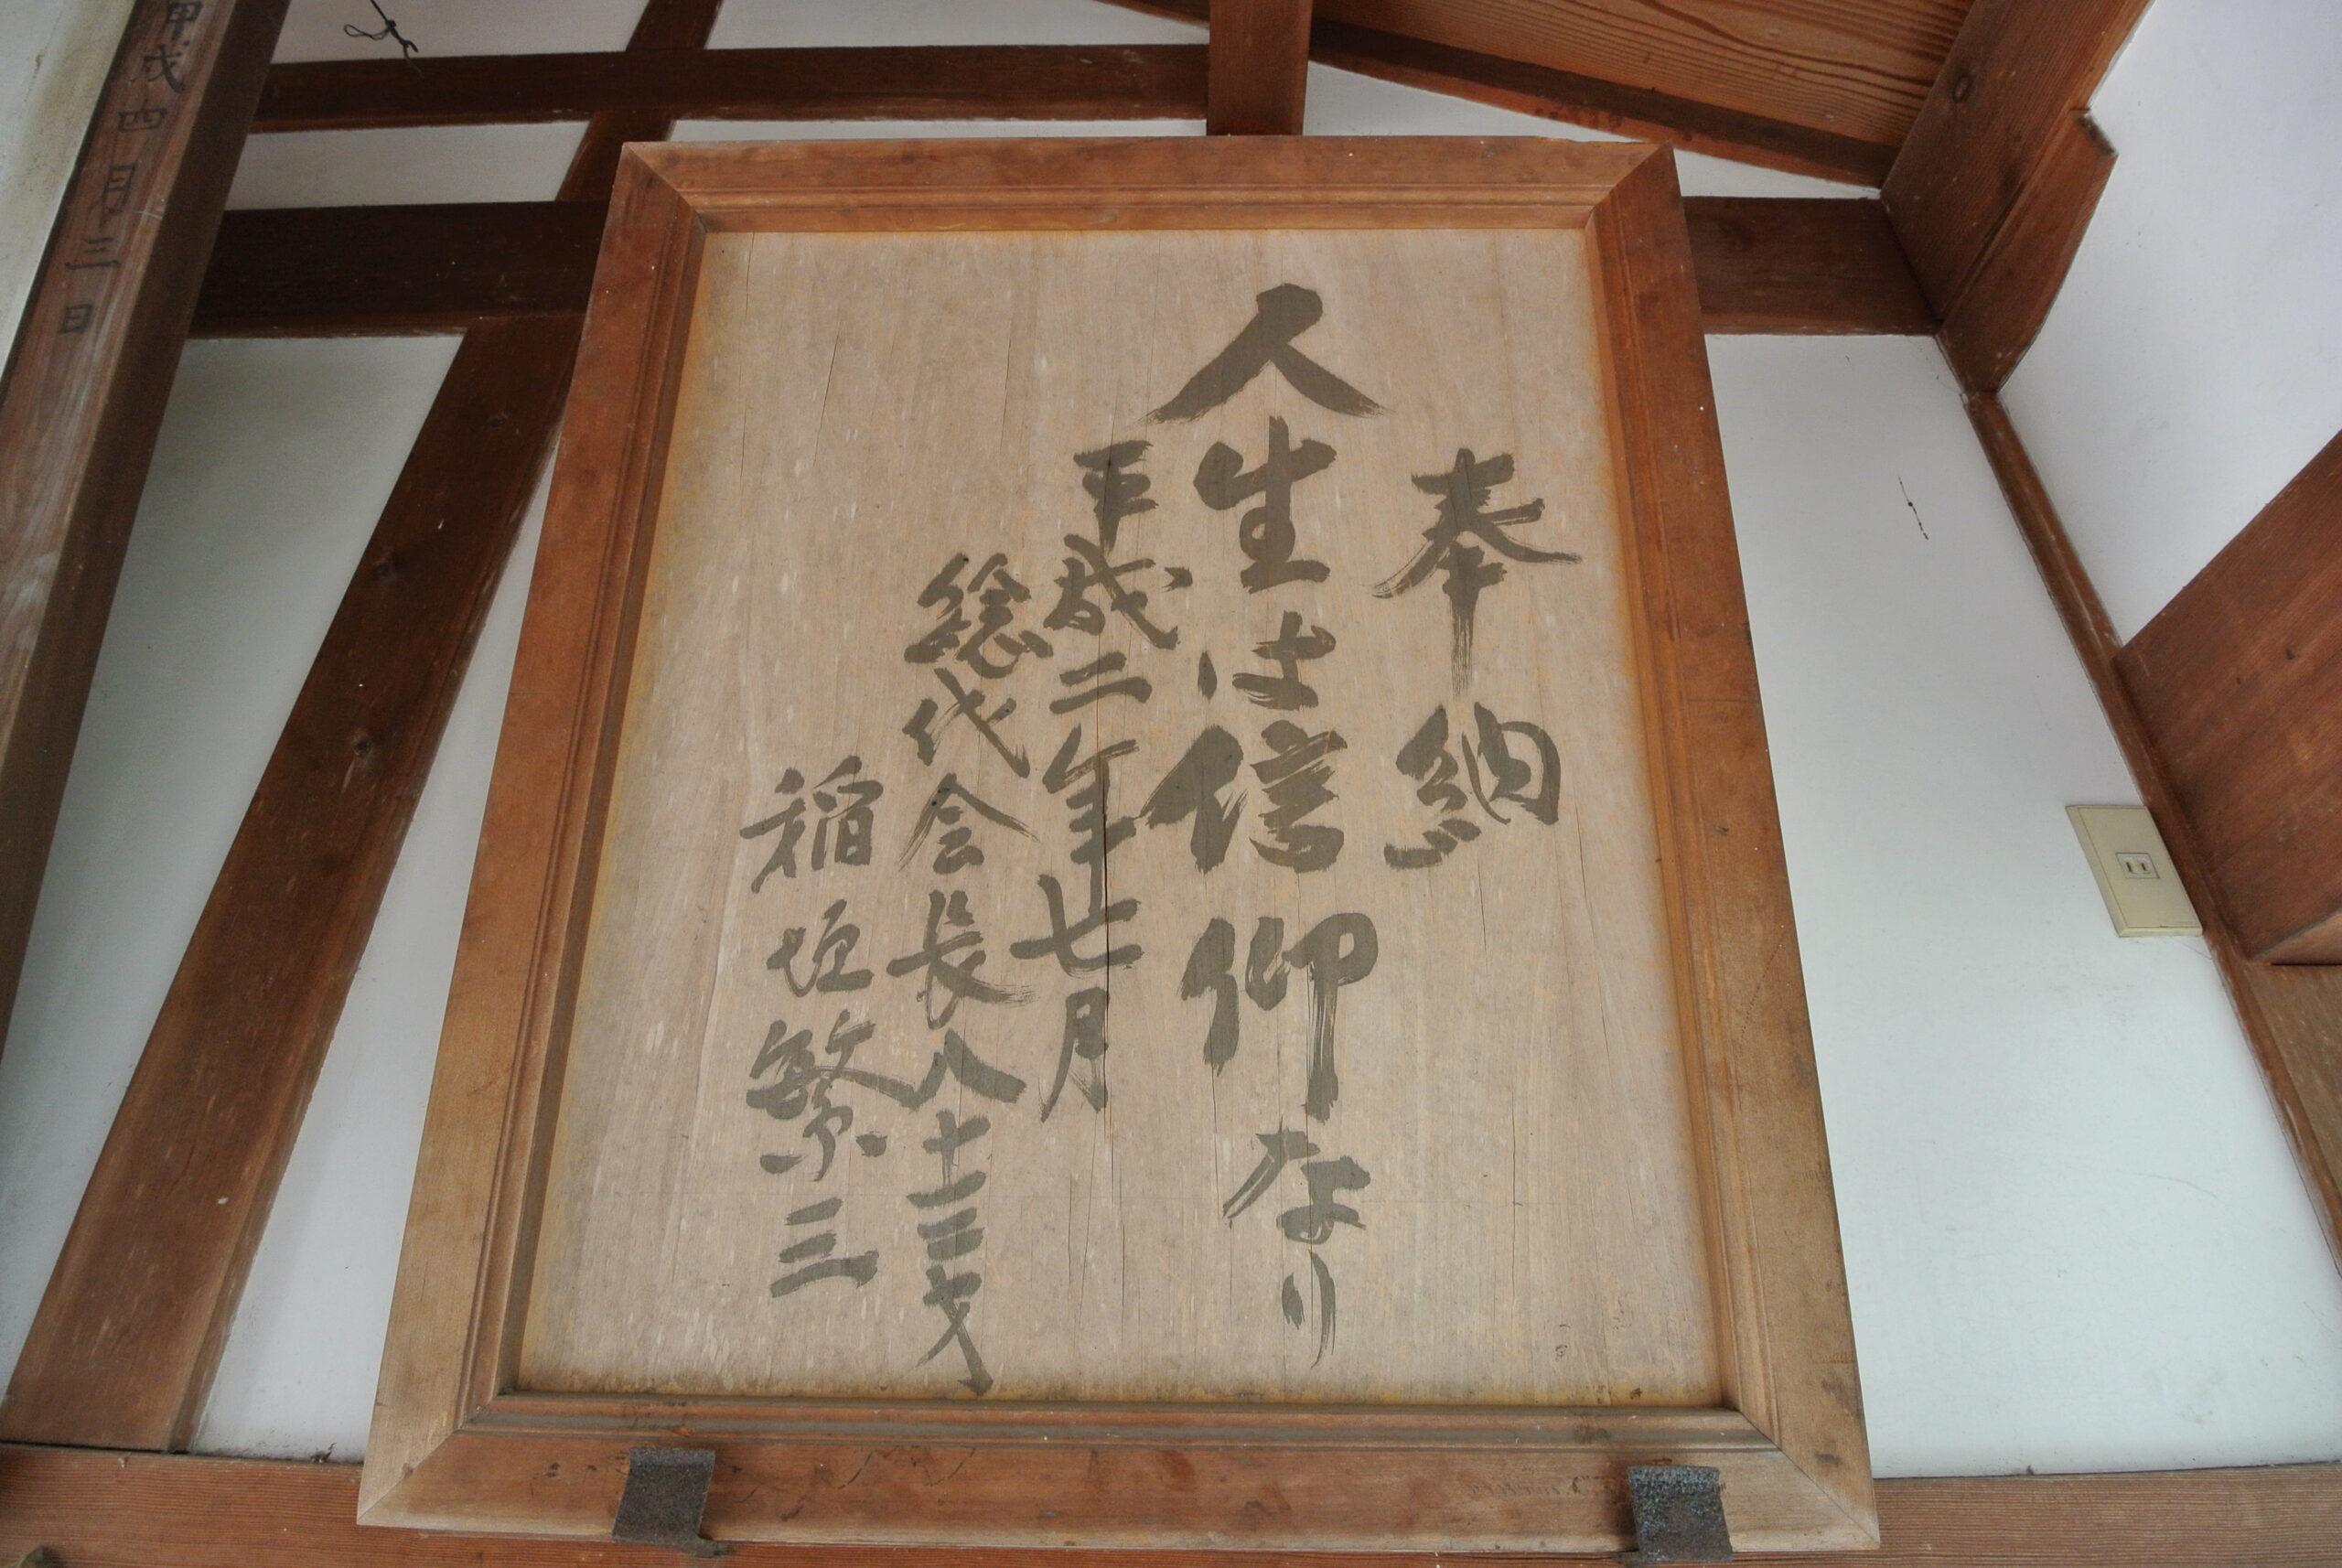 奉納
人生は信仰なり
平成二年七月
総代会長八十三才
稲垣繁三
甲戌四月三日